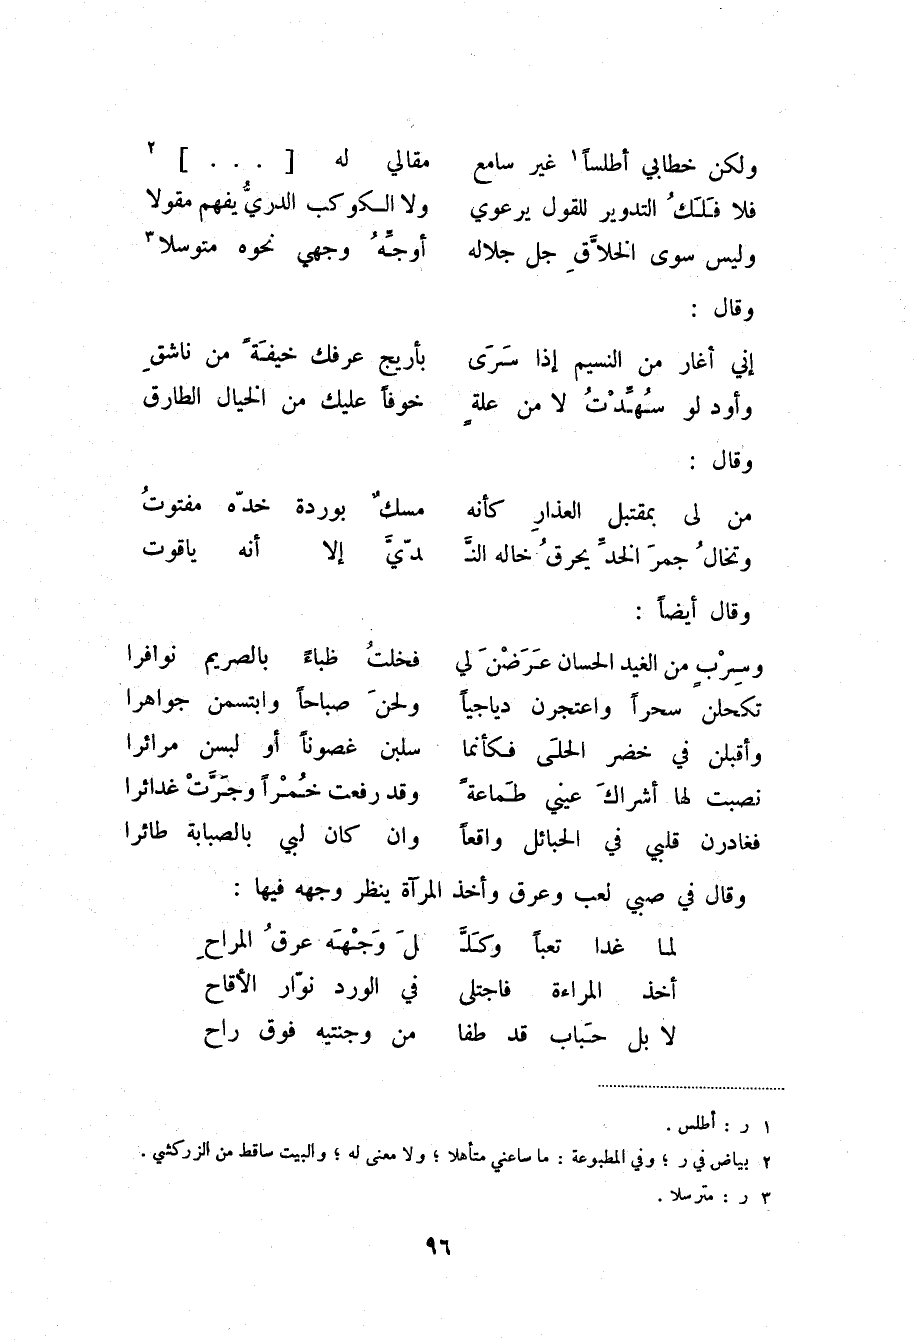 ولكن خطابي أطلساً١ غير سامع مقالي له [ . . . ] ٢
فلا فَلَكُ التدوير للقول يرعوي ولا الكوكب الدريُّ يفهم مقولا
وليس سوى الخلاَّقِ جل جلاله أوجِّهُ وجهي نحوه متوسلا٣
وقال :
إني أغار من النسيم إذا سَرَى بأريج عرفك خيفةً من ناشقِ
وأود لو سُهِّدْتُ لا من علةٍ خوفاً عليك من الخيال الطارق
وقال :
من لى بمقتبل العذارِ كأنه مسكٌ بوردة خدّه مفتوتُ
وتخالُ جمرَ الخدِّ يحرقُ خاله النَّـ ـدّيَّ إلا أنه ياقوت
وقال أيضاً :
وسِرْبٍ من الغيد الحسان عَرَضْنَ لي فخلتُ ظباءً بالصريم نوافرا
تكحلن سحراً واعتجرن دياجياً ولحنَ صباحاً وابتسمن جواهرا
وأقبلن في خضر الحلَى فكأنما سلبن غصوناً أو لبسن مرائرا
نصبت لها أشراكَ عيني طَماعةً وقد رفعت خُمْراً وجَرَّتْ غدائرا
فغادرن قلبي في الحبائل واقعاً وان كان لبي بالصبابة طائرا
وقال في صبي لعب وعرق وأخذ المرآة ينظر وجهه فيها :
لما غدا تعباً وكَلَّـ ـلَ وَجْهَه عرقُ المراحِ
أخذ المراءة فاجتلى في الورد نوّار الأقاح
لا بل حَباب قد طفا من وجنتيه فوق راح
١ ر : أطلس .
٢ بياض في ر ؛ وفي المطبوعة : ما ساعني متأهلا ؛ ولا معنى له ؛ والبيت ساقط من الزركشي .
٣ ر : مترسلا .
٩٦